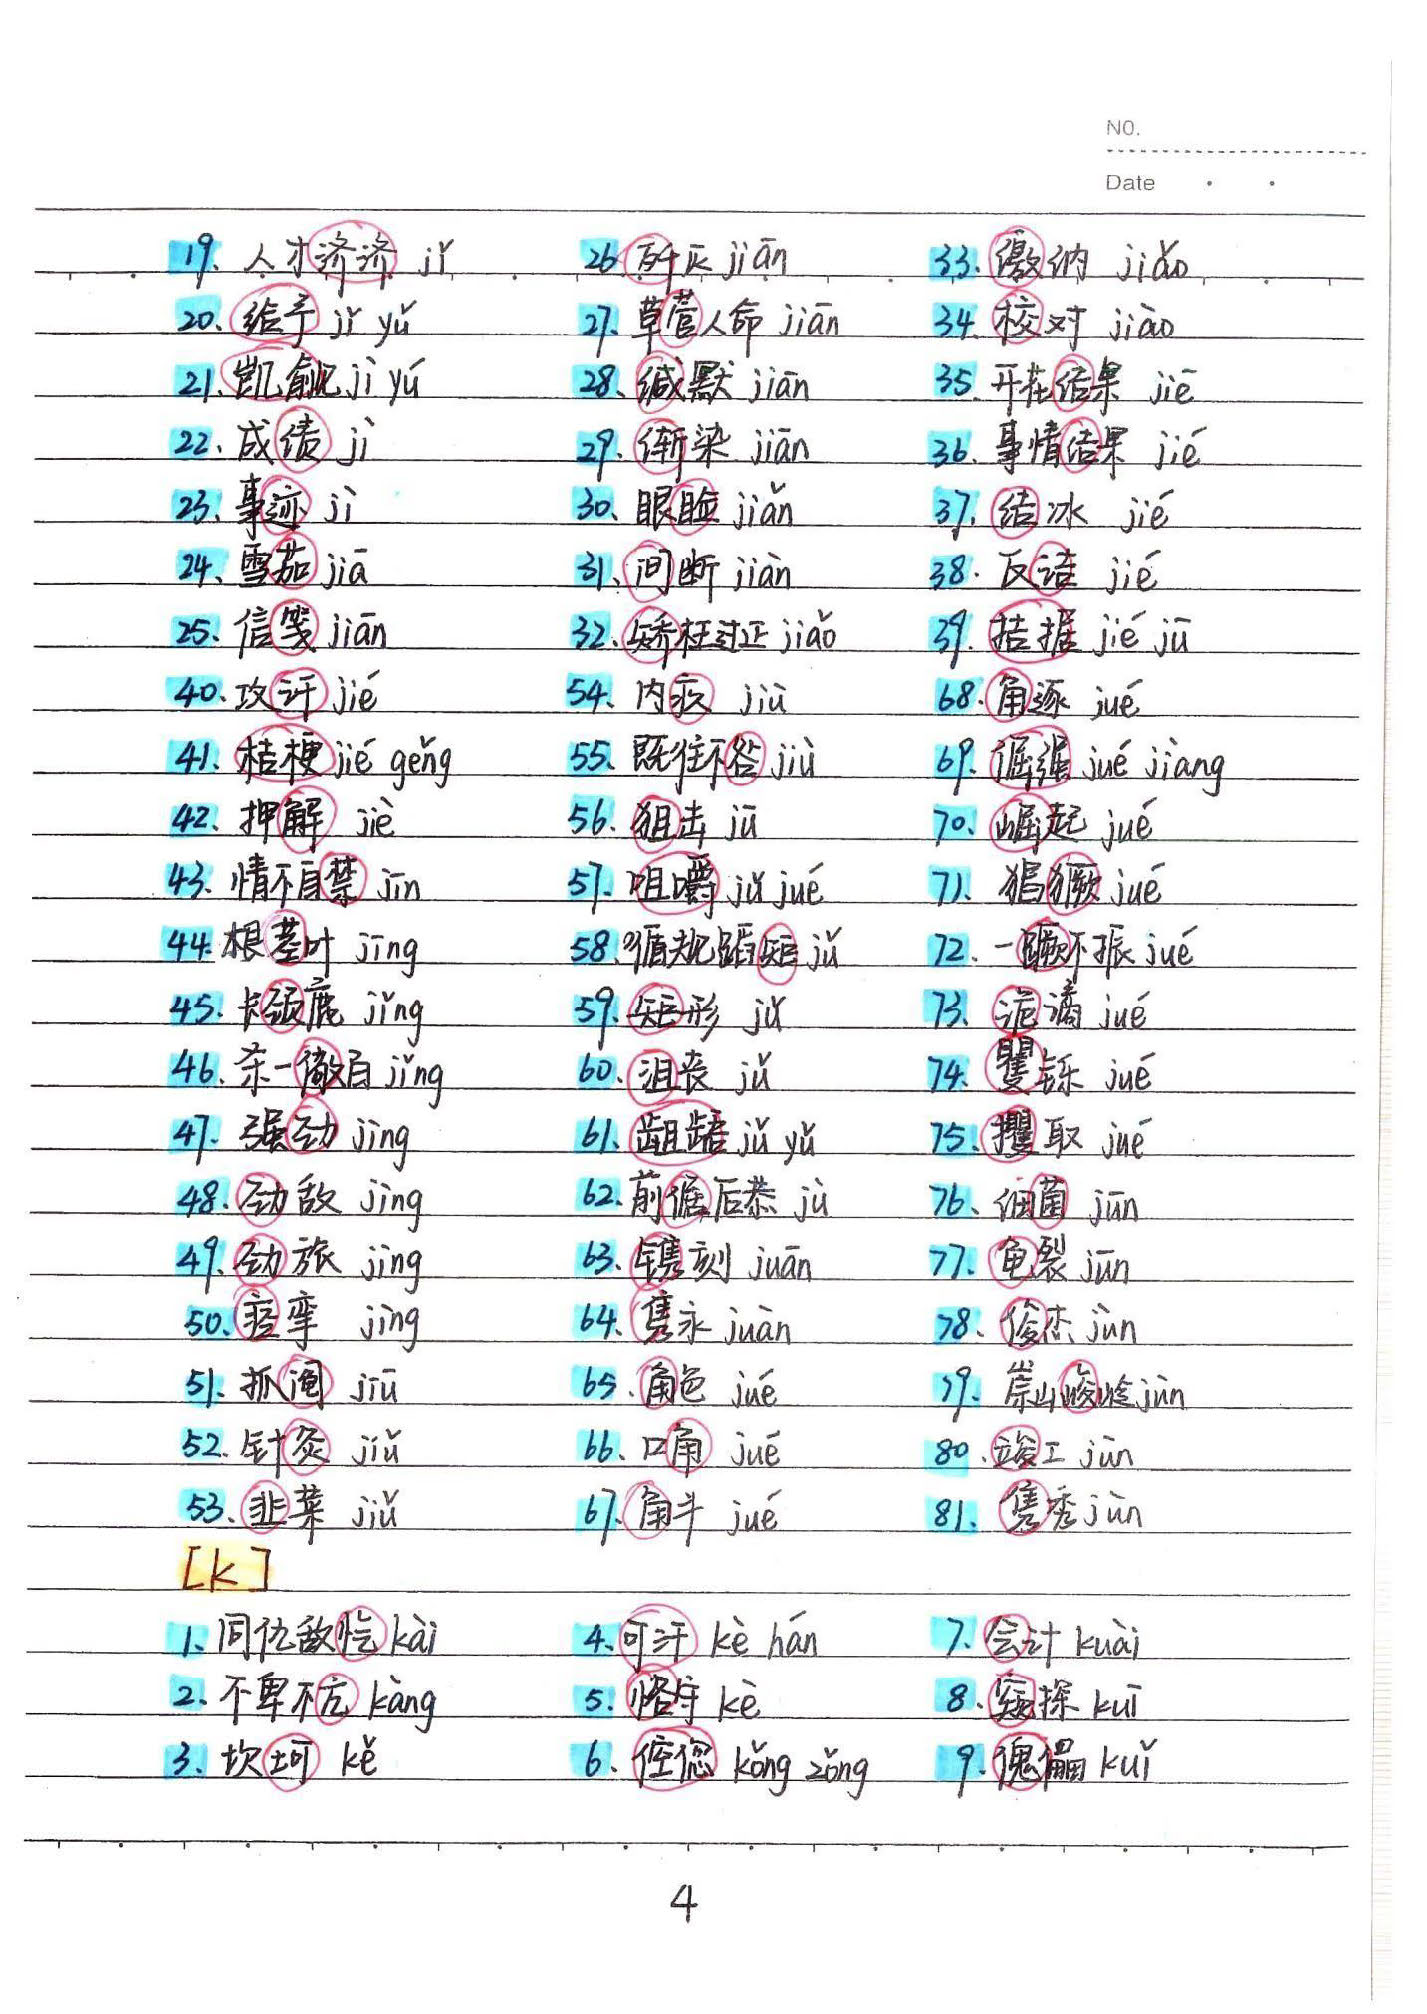 NO.
Date
19. 人才济济 jǐ
26 歼灭 jiān
33. 缴纳 jiǎo
20. 给予 jǐ yǔ
27. 草菅人命 jiān
34. 校对 jiào
21. 觊觎 jì yú
28. 缄默 jiān
35. 开花结果 jiē
22. 成绩 jì
29. 渐染 jiān
36. 事情结果 jié
23. 事迹 jì
30. 眼睑 jiǎn
37. 结冰 jié
24. 雪茄 jiā
31. 间断 jiàn
38. 反诘 jié
25. 信笺 jiān
32. 矫枉过正 jiǎo
39. 拮据 jié jū
40. 攻讦 jié
54. 内疚 jiù
68. 角逐 jué
41. 桔梗 jié gěng
55. 既往不咎 jiù
69. 倔强 jué jiàng
42. 押解 jiè
56. 狙击 jū
70. 崛起 jué
43. 情不自禁 jīn
57. 咀嚼 jǔ jué
71. 猖獗 jué
44. 根茎叶 jīng
58. 循规蹈矩 jǔ
72. 一蹶不振 jué
45. 长颈鹿 jǐng
59. 矩形 jǔ
73. 诡谲 jué
46. 杀一儆百 jǐng
60. 沮丧 jǔ
74. 矍铄 jué
47. 强劲 jìng
61. 龃龉 jǔ yǔ
75. 攫取 jué
48. 劲敌 jìng
62. 前倨后恭 jù
76. 细菌 jūn
49. 劲旅 jìng
63. 镌刻 juān
77. 龟裂 jūn
50. 痉挛 jìng
64. 隽永 juàn
78. 俊杰 jùn
51. 抓阄 jiū
65. 角色 jué
79. 崇山峻岭 jùn
52. 针灸 jiǔ
66. 口角 jué
80. 竣工 jùn
53. 韭菜 jiǔ
67. 角斗 jué
81. 隽秀 jùn
[k]
1. 同仇敌忾 kài
4. 可汗 kè hán
7. 会计 kuài
2. 不卑不亢 kàng
5. 恪守 kè
8. 窥探 kuī
3. 坎坷 kě
6. 倥偬 kǒng zǒng
9. 傀儡 kuǐ
4